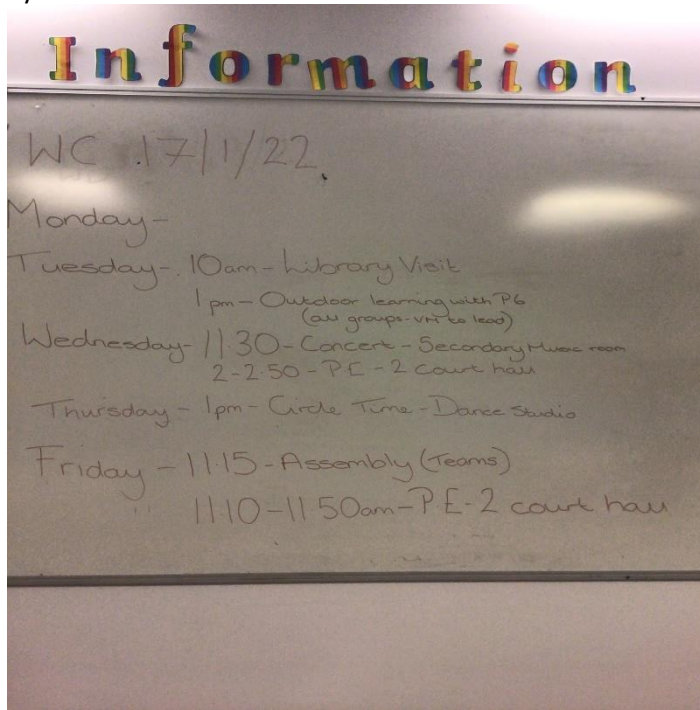 Information
WC 17/1/22
Monday-
Tuesday- 10am- Library Visit
1pm- Outdoor learning with P6
(all groups- to lead)
Wednesday- 11.30- Concert- Secondary Music room
2-2.50- P.E- 2 court hall
Thursday- 1pm- Circle Time- Dance Studio
Friday- 11.15- Assembly (Teams)
11.10-11.50am- P.E- 2 court hall